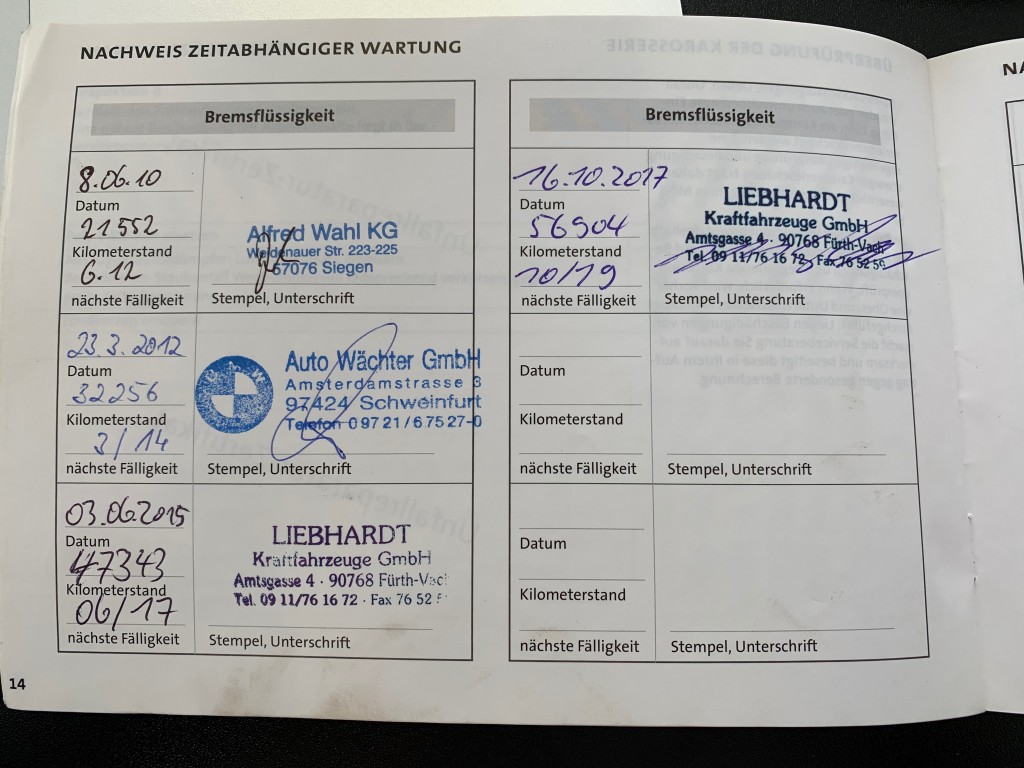 NACHWEIS ZEITABHÄNGIGER WARTUNG
Bremsflüssigkeit
8.06.10
Datum
21552
Kilometerstand
6.12
nächste Fälligkeit
Alfred Wahl KG
Weidenauer Str. 223-225
57076 Siegen
Stempel, Unterschrift
23.3.2012
Datum
32256
Kilometerstand
3/14
nächste Fälligkeit
Auto Wächter GmbH
Amsterdamstrasse 3
97424 Schweinfurt
Telefon 09721/67527-0
Stempel, Unterschrift
03.06.2015
Datum
47343
Kilometerstand
06/17
nächste Fälligkeit
LIEBHARDT
Kraftfahrzeuge GmbH
Amtsgasse 4 · 90768 Fürth-Vach
Tel. 09 11/76 16 72 · Fax 76 52
Stempel, Unterschrift
Bremsflüssigkeit
16.10.2017
Datum
56904
Kilometerstand
10/19
nächste Fälligkeit
LIEBHARDT
Kraftfahrzeuge GmbH
Amtsgasse 4 · 90768 Fürth-Vach
Tel. 09 11/76 16 72 · Fax 76 52 59
Stempel, Unterschrift
Datum
Kilometerstand
nächste Fälligkeit
Stempel, Unterschrift
Datum
Kilometerstand
nächste Fälligkeit
Stempel, Unterschrift
14
NA